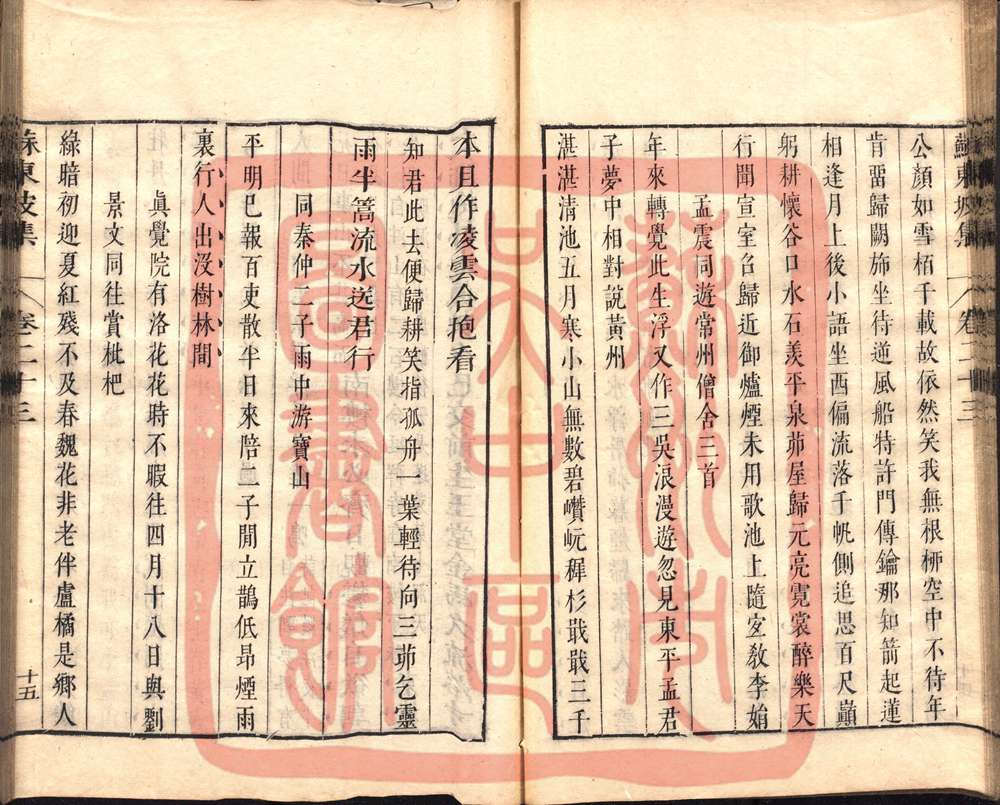 蘇東坡集 卷二十三
公顏如雪栢千載故依然笑我無根栁空中不待年
肯畱歸闕斾坐待逆風船特許門傳鑰那知箭起蓮
相逢月上後小語坐西偏流落千帆側追思百尺巔
躬耕懷谷口水石羨平泉茆屋歸元亮霓裳醉樂天
行聞宣室召歸近御爐煙未用歌池上隨宐敎李娟
孟震同遊常州僧舍三首
年來轉覺此生浮又作三吳浪漫遊忽見東平孟君
子夢中相對說黃州
湛湛清池五月寒小山無數碧巑岏穉杉戢戢三千
本且作凌雲合抱看
知君此去便歸耕笑指孤舟一葉輕待向三茆乞靈
雨半篙流水送君行
同秦仲二子雨中游寶山
平明已報百吏散半日來陪二子閒立鵲低昂煙雨
裏行人出沒樹林間
眞覺院有洛花花時不暇往四月十八日與劉
景文同往賞枇杷
綠暗初迎夏紅殘不及春魏花非老伴盧橘是鄉人
蘇東坡集 卷二十三
十五